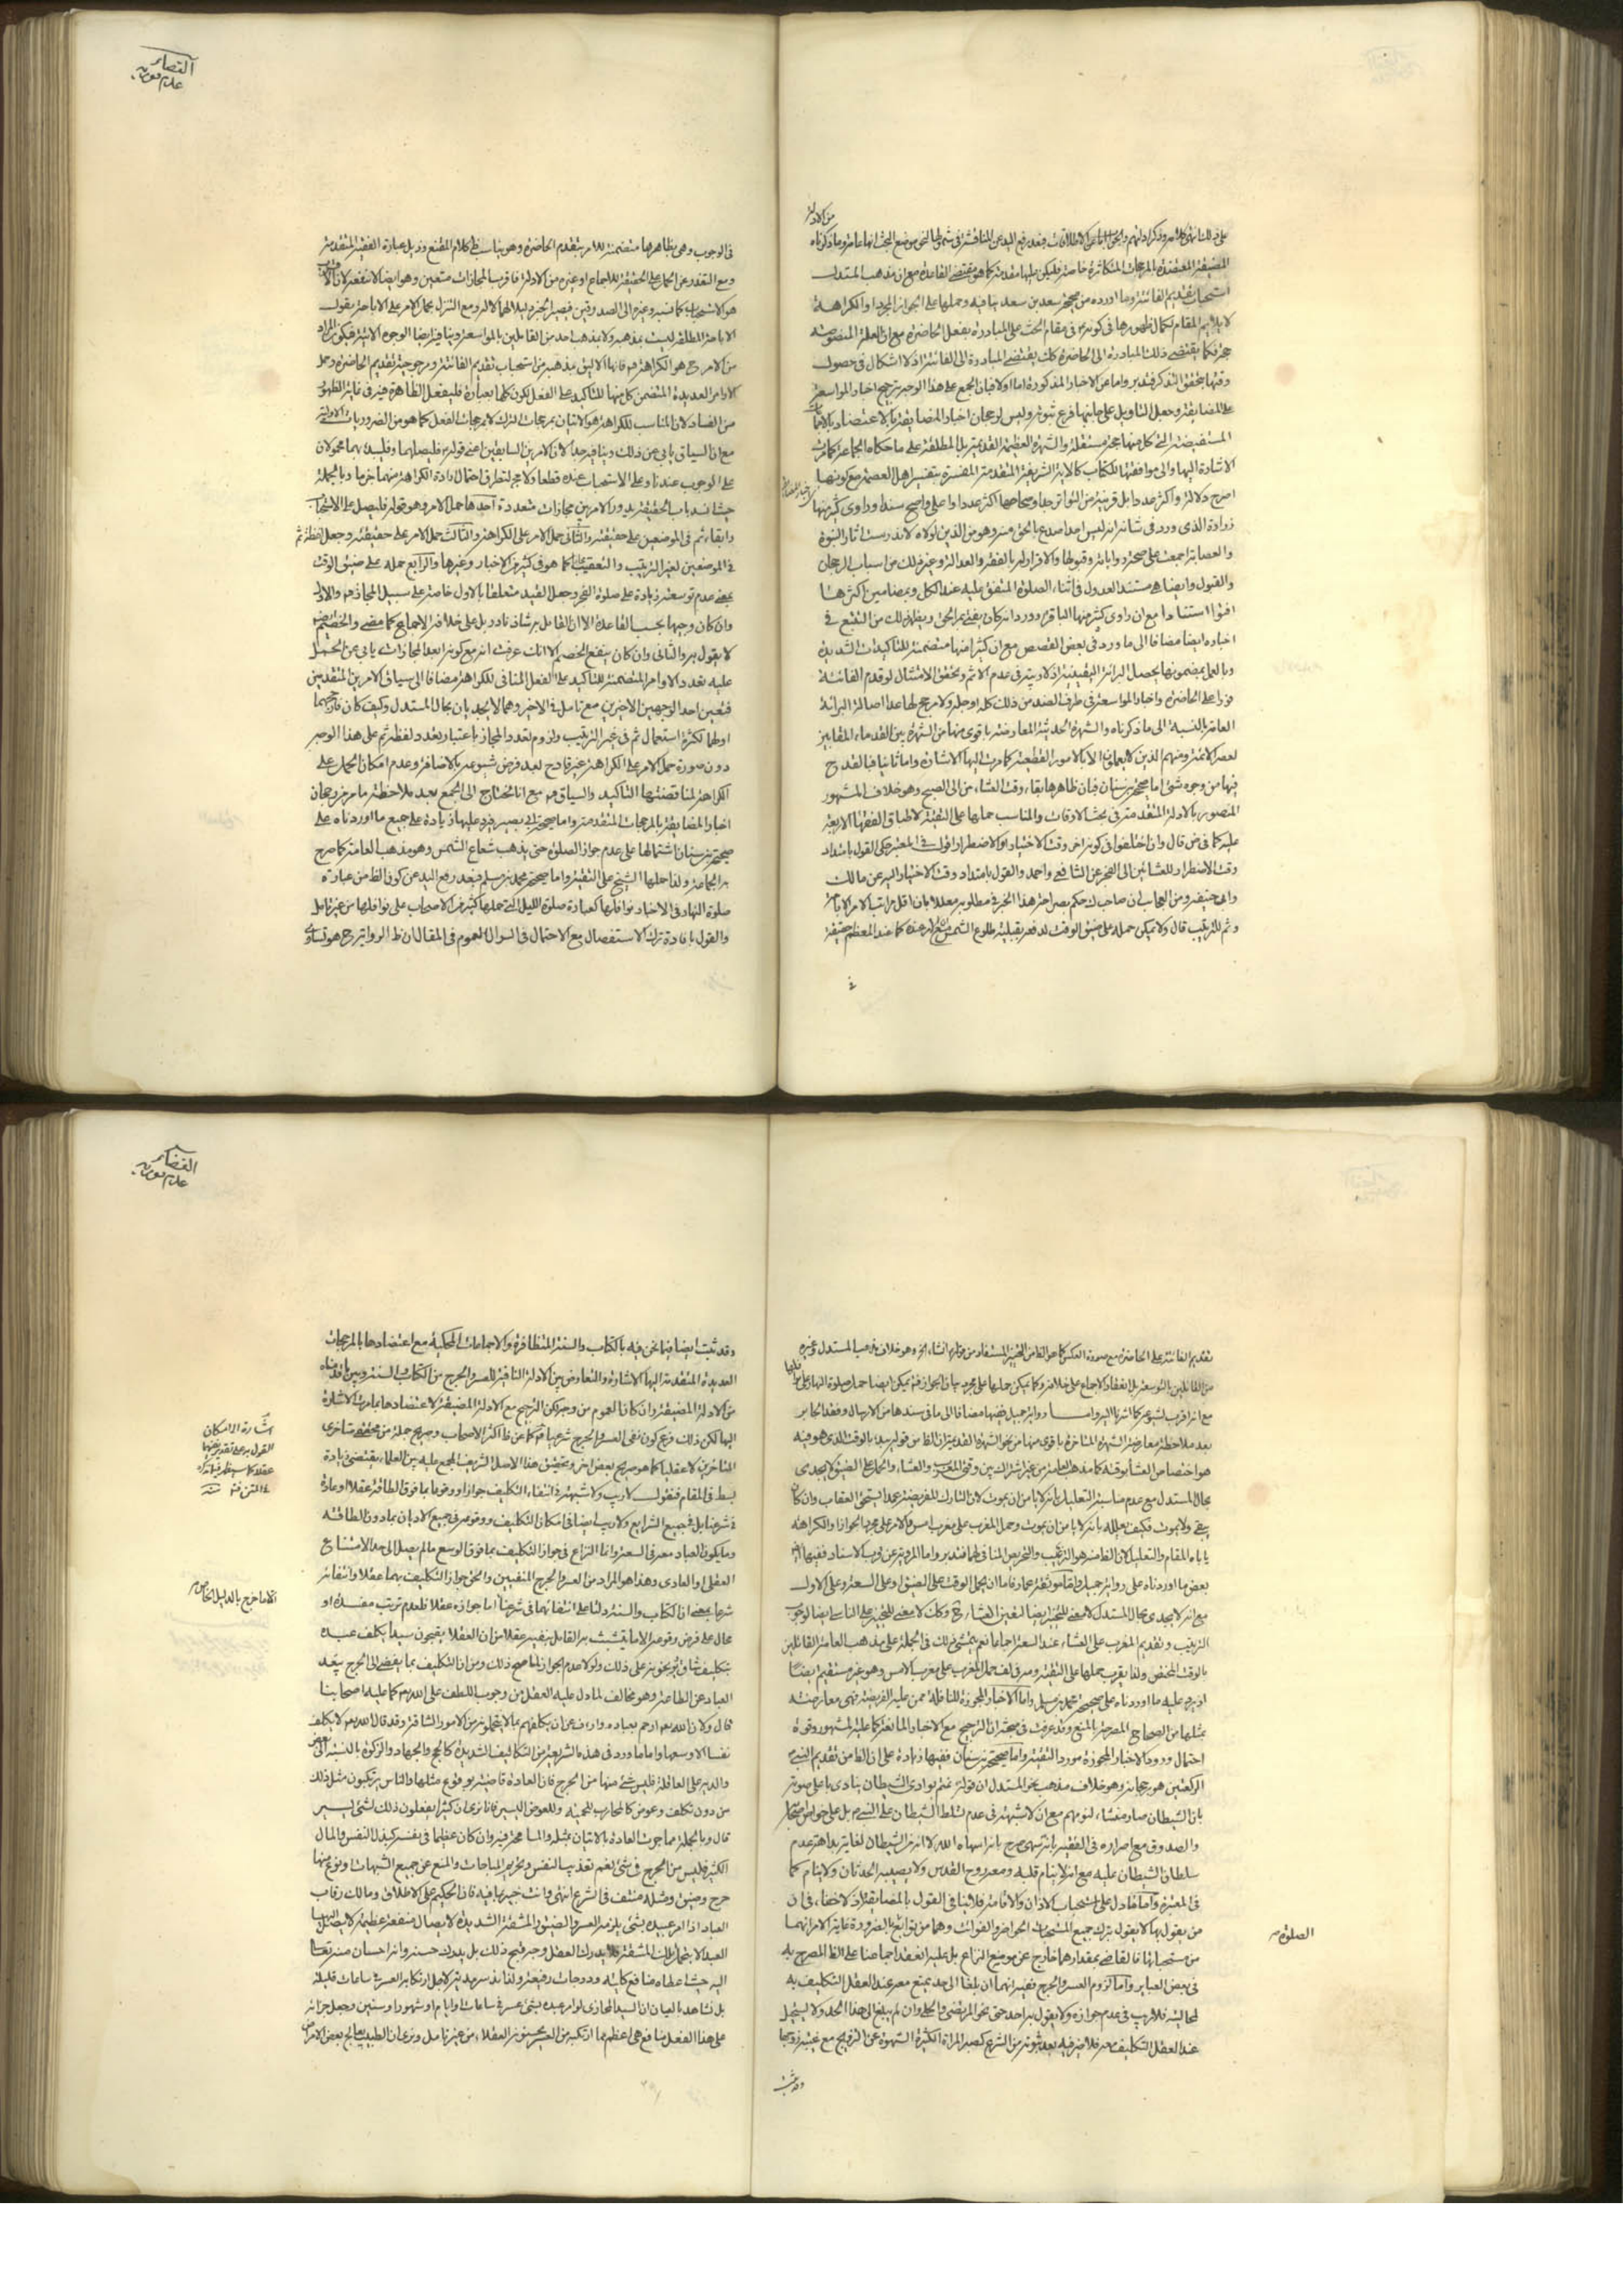 القضاء
من الادلة
المضيقة المعتضدة بالمرجحات المتكاثرة خاصة فليكن عليها مقدمة كما هو مقتضى القاعدة مع ان مذهب المستدل
استحباب تقديم الفائتة وما اورده من صحيحة سعد بن سعد ينافيه وحملها على الجواز المجرد او الكراهة
لا يلايم المقام لكمال ظهورها في كونه في مقام الحث على المبادرة بفعل الحاضرة مع ان العلة المنصوصة
فيها كما يقتضى ذلك المبادرة الى الحاضرة كك يقتضى المبادرة الى الفائتة اذ لا اشكال في حصول
وقتها بتحقق التذكر فتدبر واما عن الاخبار المذكورة اما اولا فبان الجمع على هذا الوجه بترجيح اخبار المواسعة
على المضايقة وجعل التاويل على جانبها فرع ثبوته وليس لرجحان اخبار المضايقة بالاعتضاد بالاجماعات
المستفيضة التي كل منها حجة مستقلة والشهرة العظيمة القديمة بل المطلقة على ما حكاه الجماعة كما مرت
الاشارة اليها والى موافقتها للكتاب كالاية الشريفة المتقدمة المفسرة بتفسير اهل العصمة مع كونها
اصرح دلالة واكثر عددا بل قريبة من التواتر جدا وصحاحها اكثر عددا واعلى واصح سندا وراوى كثير منها
زرارة الذى ورد في شانه انه ليس احد اصدع بالحق منه وهو من الذين لولاه لاندرست اثار النبوة
والعصابة اجمعت على صحة رواياته وقبولها والاقرار له بالفقه والعدالة وغير ذلك من اسباب الرجحان
والقبول وايضا هى مستند العدول في اثناء الصلوة المتفق عليه عند الكل وبمضامين اكثرها
افتوا استنادا مع ان راوى كثير منها الباقر وورد انه كان يفتى بمر الحق ويظهر ذلك من التتبع في
اخباره ايضا مضافا الى ما ورد في بعض القصص مع ان كثيرا منها متضمنة للتاكيدات الشديدة
وبالعمل بمضمونها يحصل البرائة اليقينية اذ لا ريب في عدم الاثم وتحقق الامتثال لو قدم الفائتة
فورا على الحاضرة واخبار المواسعة في طرف الضد من ذلك كله او جله ولا مرجح لها عدا اصالة البرائة
العامة بالنسبة الى ما ذكرناه والشهرة الحديثة المعارضة باقوى منها من الشهرة بين القدماء المقاربين
لعصر الائمة ومنهم الذين لا يعملون الا بالامور القطعية كما مرت اليها الاشارة واما ثانيا فبالقدح
فيها من وجوه شتى اما صحيحة بن سنان فبان ظاهرها بقاء وقت العشاء من الى الصبح وهو خلاف المشهور
المنصور بالادلة المتقدمة في بحث الاوقات والمناسب حملها على التقية لاطباق الفقهاء الاربعة
عليه كما في ض قال وان اختلفوا في كونه اخر وقت الاختيار او الاضطرار اقول في المعتبر حكى القول بامتداد
وقت الاضطرار للعشائين الى الفجر عن الشافعى واحمد والقول بامتداد وقت الاختيار اليه عن مالك
وابى حنيفة ومن العجائب ان صاحب ك حكم بصراحة هذا الخبر في مطلوبه معللا بان اقل مراتب الامر الاباحة
في
فى الوجوب وهى بظاهرها متضمنة للامر بتقديم الحاضرة وهو يناسب ظ كلام المقنع وذيل عبارة الفقيه المتقدمة
ومع التعذر عن الحمل على الحقيقة للاجماع او غيره من الادلة فاقرب المجازات متعين وهو ايضا لا ينفعه لان الاقرب
هو الاستحباب كما نسبه وغيره الى الصدوقين فيصير الخبر دليلا لهما لا له ومع التنزل بحمل الامر على الاباحة نقول
الاباحة المطلقة ليست بمذهبه ولا بمذهب احد من القائلين بالمواسعة وينافيه ايضا الوجوه الاتية فيكون المراد
من الامر ح هو الكراهة مع
الاوامر العديدة المتضمن كل منها للتاكيد على الفعل لكون كلها بعبارة فليفعل الظاهرة فيه في غاية الظهور
من الفساد لان المناسب للكراهة هو الاتيان بمرجحات الترك لا بمرجحات الفعل كما هو من الضروريات الاولية
مع ان السياق يابى عن ذلك وينافيه جدا لان الامرين السابقين اعنى قوله فليصلهما وفليبدء بهما محمولان
على الوجوب عندنا وعلى الاستحباب عنده قطعا ولا مجر لتطرق احتمال ارادة الكراهة منهما جزما وبالجملة
حيث انسد باب الحقيقة يدور الامر بين مجازات متعددة احدها حمل الامر وهو قوله فليصل على الاستحباب
وابقاء ثم في الموضعين على حقيقته والثانى حمل الامر على الكراهة والثالث حمل الامر على حقيقته وجعل لفظة ثم
في الموضعين لغير الترتيب والتعقيب كما هو في كثير من الاخبار وغيرها والرابع حمله على ضيق الوقت
بمعنى عدم توسعته زيادة على صلوة الفجر وجعل القيد متعلقا بالاول خاصة على سبيل المجاز والاول
وان كان وجيها بحسب القاعدة الا ان القائل به شاذ نادر بل على خلافه الاجماع كما مضى والخصم ايضا
لا يقول به والثانى وان كان ينفع الخصم الا انك عرفت انه مع كونه ابعد المجازات يابى عن الحمل
عليه تعدد الاوامر المتضمنة للتاكيد على الفعل المنافى للكراهة مضافا الى سياق الامرين المتقدمين
فتعين احد الوجهين الاخيرين مع تامل في الاخير وهما لا يجديان بحال المستدل وكيف كان فارجحهما
اولهما لكثرة استعمال ثم في غير الترتيب ولزوم تعدد المجاز باعتبار تعدد لفظة ثم على هذا الوجه
دون صورة حمل الامر على الكراهة غير قادح لبعد فرض شيوعه بالاضافة وعدم امكان الحمل على
الكراهة لمناقضتها التاكيد والسياق مع انا نحتاج الى الجمع بعد ملاحظة ما مر من رجحان
اخبار المضايقة بالمرجحات المتقدمة واما صحيحة ابى بصير فيرد عليها زيادة على جميع ما اوردناه على
صحيحة بن سنان اشتمالها على عدم جواز الصلوة حتى يذهب شعاع الشمس وهو مذهب العامة كما صرح
به الجماعة ولذا حملها الشيخ على التقية واما صحيحة محمد بن مسلم فبعد رفع اليد عن كون الظ من عبارة
صلوة النهار في الاخبار نوافلها كعبارة صلوة الليل التى حملها كثير من الاصحاب على نوافلها من غير تامل
والقول بافادة ترك الاستفصال مع الاحتمال في السوال العموم في المقال ان ظ الرواية ح هو تساوى
القضاء
تقديم الفائتة على الحاضرة مع صورة العكس كما هو الظ من التخيير المستفاد من قوله انشاء اخر وهو خلاف مذهب المستدل وغيره
مع انه اقرب لشيوعه كما اشرنا اليه واما رواية جميل ففيها مضافا الى ما في سندها من الارسال وفقد الجابر
بعد ملاحظة معارضة الشهرة المتاخرة باقوى منها من نحو الشهرة القديمة ان الظ من قوله يبدء بالوقت الذى هو فيه
هو اختصاص العشاء بوقته كما مذهب العامة من غير اشتراك بين وقتى المغرب والعشاء والحمل على الضيق لا يجدى
بحال المستدل مع عدم مناسبة التعليل بانه لا يامن ان يموت لان التارك للفريضة عمدا يستحق العقاب وان كان
يبقى ولا يموت فكيف يعلله بانه لا يامن ان يموت وحمل المغرب على مغرب امس والامر على مجرد الجواز او الكراهة
ياباه المقام والتعليل لان الظ منه هو الترغيب والتحريص المنافى لهما فتدبر واما المروية عن قرب الاسناد ففيها ايضا
بعض ما اوردناه على رواية جميل واما موثقة عمار فاما ان يحمل الوقت على الضيق او على السعة وعلى الاول
مع انه لا يجدى بحال المستدل لا معنى للتخيير ايضا لتعين العشاء ح وكك لا معنى للتخيير على الثانى ايضا لوجوب
الترتيب وتقديم المغرب على العشاء عند السعة اجماعا نعم يتمشى ذلك في الجملة على مذهب العامة القائلين
بالوقت المختص ولذا يقرب حملها على التقية ومر في الف حمل المغرب على مغرب الامس وهو غير مستقيم ايضا
اذ يرد عليه ما اوردناه على صحيحة محمد بن مسلم واما الاخبار المجوزة للنافلة لمن عليه الفريضة فهى معارضة
بمثلها من الصحاح المصرحة بالمنع وقد عرفت في محله ان الترجيح مع الاخبار المانعة كما عليه المشهور وقوة
احتمال ورود الاخبار المجوزة مورد التقية واما صحيحة بن سنان ففيها زيادة على ان الظ من تقديم النبى
الركعتين هو رجحانه وهو خلاف مذهب نحو المستدل ان قوله نمتم بوادى الشيطان ينادى باعلى صوته
بان الشيطان صار منشاء لنومهم مع ان لا شبهة في عدم تسلط الشيطان على النبى بل على خواص اصحابه
والصدوق مع اصراره في الفقيه بانه سهى صرح بانه اسهاه الله لا انه من الشيطان لغاية بداهة عدم
سلطان الشيطان عليه مع انه لا ينام قلبه ومعه روح القدس ولا يصيبه الحدثان ولا ينام كما
في المعتبرة واما ما دل على استحباب الاذان والاقامة فلا ينافى القول بالمضايقة اذ لا خفاء في ان
من يقول بها لا يقول بترك جميع المستحبات الحواضر والفوائت وهما من توابع بالضرورة غاية الامر انهما
الصلوة
من مستحباتها فالتقاضى بمقدارهما خارج عن موضع النزاع بل عليه انعقد اجماعنا على الظ المصرح به
في بعض العباير واما لزوم العسر والحرج ففيه انهما ان بلغا الى حد يمتنع معه عند العقل التكليف به
لمحاليته فلا ريب في عدم جوازه ولا يقول به احد حتى نحو المرتضى والحلى وان لم يبلغ الى هذا الحد ولا يستحيل
عند العقل التكليف معه فلا ضير فيه بعد ثبوته من الشرع كصبر المراة الكثيرة الشهوة عن التزويج مع غيبة زوجها
وقد ثبت
وقد ثبت ايضا فيما نحن فيه بالكتاب والسنة المتظافرة والاجماعات المحكية مع اعتضادها بالمرجحات
العديدة المتقدمة اليها الاشارة والتعارض بين الادلة النافية للعسر والحرج من الكتاب والسنة وبين ما قدمناه
من الادلة المضيقة وان كان العموم من وجه لكن الترجيح مع الادلة المضيقة لاعتضادها بما مرت الاشارة
اليها لكن ذلك فرع كون نفى العسر والحرج شرعيا كما عن ظ اكثر الاصحاب وصريح جملة من محققى متاخرى
المتاخرين لا عقليا كما هو صريح بعض اخر وتحقيق هذا الاصل الشريف المجمع عليه بين العلماء يقتضى زيادة
بسط في المقام فنقول لا ريب ولا شبهة في انتفاء التكليف جوازا ووقوعا بما فوق الطاقة عقلا او عادة
في شرعنا بل في جميع الشرايع ولا ريب ايضا في امكان التكليف ووقوعه في جميع الاديان بما دون الطاقة
وما يكون العباد معه في السعة وانما النزاع في جواز التكليف بما فوق الوسع ما لم يصل الى حد الامتناع
العقلى او العادى وهذا هو المراد من العسر والحرج المنفيين والحق جواز التكليف بهما عقلا وانتفائه
شرعا بمعنى ان الكتاب والسنة دلنا على انتفائهما في شرعنا اما جوازه عقلا فلعدم ترتب مفسدة او
محال على فرض وقوعه الا ما يتشبث به القائل بنفيه عقلا من ان العقلا يقبحون سيدا يكلف عبده
بتكليف شاق
العباد عن الطاعة وهو مخالف لما دل عليه العقل من وجوب اللطف على الله كما عليه اصحابنا
قال ولان الله تع ارحم بعباده وارءف من ان يكلفهم بما لا يتحملونه من الامور الشاقة وقد قال الله تع لا يكلف
نفسا الا وسعها واما ما ورد في هذه الشريعة من التكاليف الشديدة كالحج والجهاد والزكوة بالنسبة الى بعض
والدية على العاقلة فليس شئ منها من الحرج فان العادة قاضية بوقوع مثلها والناس يرتكبون مثل ذلك
من دون تكلف وعوض كالمحارب للحمية وللعوض اليسير فانا نرى ان كثيرا يفعلون ذلك لشئ يسير
قال وبالجملة فما جرت العادة بالاتيان بمثله والمسامحة فيه وان كان عظيما في نفسه كبذل النفس والمال
الكثير فليس من الحرج في شئ نعم تعذيب النفس وتحريم المباحات والمنع عن جميع الشبهات او نوع منها
حرج وضيق ومثله منتف في الشرع انتهى وانت خبير بما فيه فان الحكيم على الاطلاق ومالك رقاب
العباد اذا امر عبيده بشئ يلزمه العسر والضيق والمشقة الشديدة لايصال منفعة عظيمة لا يصل اليها
العبد الا بتحمل تلك المشقة فلا يدرك العقل وجه قبح ذلك بل يدرك حسنه وانه احسان منه تعالى
اليه حيث اعطاه منافع كاملة ودرجات رفيعة ولذا يذ سرمدية لاجل ارتكابه العسر في ساعات قليلة
بل نشاهد بالعيان ان السيد المجازى لو امر عبده بشئ عسر في ساعات او ايام او شهور او سنين وجعل جزائه
على هذا الفعل منافع هى اعظم مما ارتكبه من العسر يحسنونه العقلاء من غير تامل ونرى ان الطبيب يعالج بعض الامراض
اشارة الى امكان
الا ما خرج بالدليل الخاص